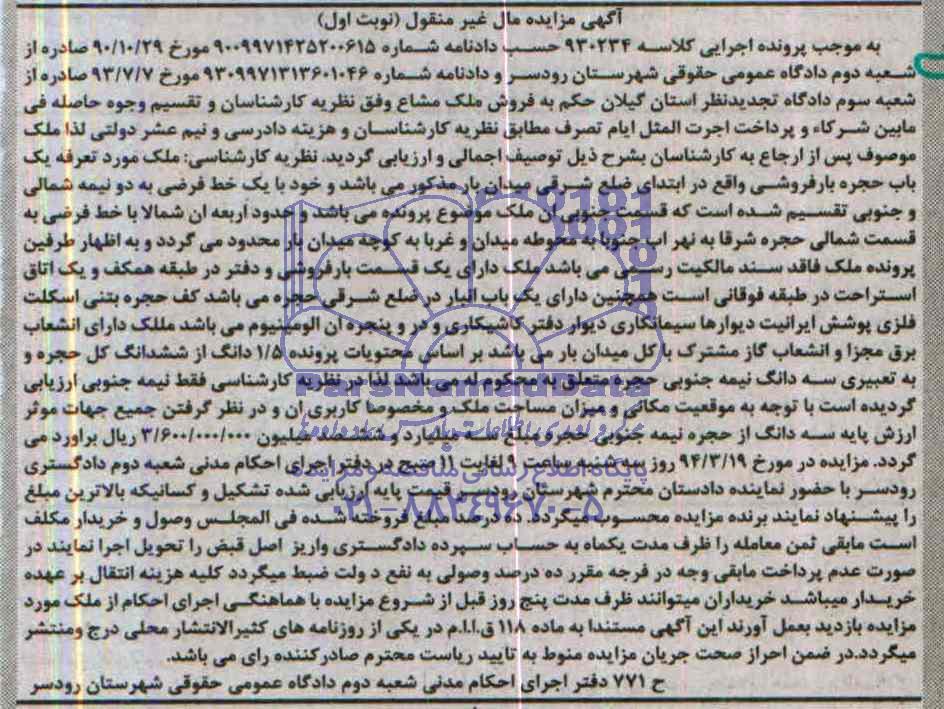 آگهی مزایده مال غیر منقول (نوبت اول)
به موجب پرونده اجرایی کلاسه ۹۳۰۲۳۴ حسب دادنامه شماره ۹۰۰۹۹۷۱۴۲۵۲۰۰۶۱۵ مورخ ۹۰/۱۰/۲۹ صادره از
شعبه دوم دادگاه عمومی حقوقی شهرستان رودسر و دادنامه شماره ۹۳۰۹۹۷۱۳۱۳۶۰۱۰۴۶ مورخ ۹۳/۷/۷ صادره از
شعبه سوم دادگاه تجدیدنظر استان گیلان حکم به فروش ملک مشاع وفق نظریه کارشناسان و تقسیم وجوه حاصله فی
مابین شرکاء و پرداخت اجرت المثل ایام تصرف مطابق نظریه کارشناسان و هزینه دادرسی و نیم عشر دولتی لذا ملک
موصوف پس از ارجاع به کارشناسان بشرح ذیل توصیف اجمالی و ارزیابی گردید. نظریه کارشناسی: ملک مورد تعرفه یک
باب حجره بارفروشی واقع در ابتدای ضلع شرقی میدان بار مذکور می باشد و خود با یک خط فرضی به دو نیمه شمالی
و جنوبی تقسیم شده است که قسمت جنوبی ان ملک موضوع پرونده می باشد و حدود اربعه ان شمالا با خط فرضی به
قسمت شمالی حجره شرقا به نهر اب جنوبا به محوطه میدان و غربا به کوچه میدان بار محدود می گردد و به اظهار طرفین
پرونده ملک فاقد سند مالکیت رسمی می باشد ملک دارای یک قسمت بارفروشی و دفتر در طبقه همکف و یک اتاق
استراحت در طبقه فوقانی است همچنین دارای یک باب انبار در ضلع شرقی حجره می باشد کف حجره بتنی اسکلت
فلزی پوشش ایرانیت دیوارها سیمانکاری دیوار دفتر کاشیکاری و در و پنجره ان الومینیوم می باشد مللک دارای انشعاب
برق مجزا و انشعاب گاز مشترک با کل میدان بار می باشد بر اساس محتویات پرونده ۱/۵ دانگ از ششدانگ کل حجره و
به تعبیری سه دانگ نیمه جنوبی حجره متعلق به محکوم له می باشد لذا در نظریه کارشناسی فقط نیمه جنوبی ارزیابی
گردیده است با توجه به موقعیت مکانی و میزان مساحت ملک و مخصوصا کاربری ان و در نظر گرفتن جمیع جهات موثر
ارزش پایه سه دانگ از حجره نیمه جنوبی حجره مبلغ سه میلیارد و ششصد میلیون ۳/۶۰۰/۰۰۰/۰۰۰ ریال براورد می
گردد. مزایده در مورخ ۹۴/۳/۱۹ روز سه شنبه ساعت ۹ لغایت ۱۱ صبح در دفتر اجرای احکام مدنی شعبه دوم دادگستری
رودسر با حضور نماینده دادستان محترم شهرستان رودسر قیمت پایه ارزیابی شده تشکیل و کسانیکه بالاترین مبلغ
را پیشنهاد نمایند برنده مزایده محسوب میگردد. ده درصد مبلغ فروخته شده فی المجلس وصول و خریدار مکلف
است مابقی ثمن معامله را ظرف مدت یکماه به حساب سپرده دادگستری واریز اصل قبض را تحویل اجرا نمایند در
صورت عدم پرداخت مابقی وجه در فرجه مقرر ده درصد وصولی به نفع د ولت ضبط میگردد کلیه هزینه انتقال بر عهده
خریدار میباشد خریداران میتوانند ظرف مدت پنج روز قبل از شروع مزایده با هماهنگی اجرای احکام از ملک مورد
مزایده بازدید بعمل آورند این آگهی مستندا به ماده ۱۱۸ ق.ا.ا.م در یکی از روزنامه های کثیرالانتشار محلی درج ومنتشر
میگردد.در ضمن احراز صحت جریان مزایده منوط به تایید ریاست محترم صادرکننده رای می باشد.
ح ۷۷۱ دفتر اجرای احکام مدنی شعبه دوم دادگاه عمومی حقوقی شهرستان رودسر
ParsNamadData
پایگاه اطلاع رسانی مناقصه و مزایده
۰۲۱-۸۸۳۴۹۶۷۰-۵